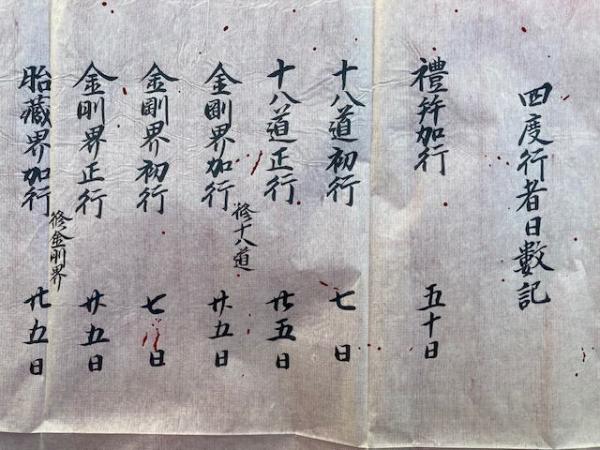 四度行者日數記
禮拜加行 五十日
十八道初行 七日
十八道正行 廿五日
金剛界加行 修十八道 廿五日
金剛界初行 七日
金剛界正行 廿五日
胎藏界加行 修金剛界 廿五日